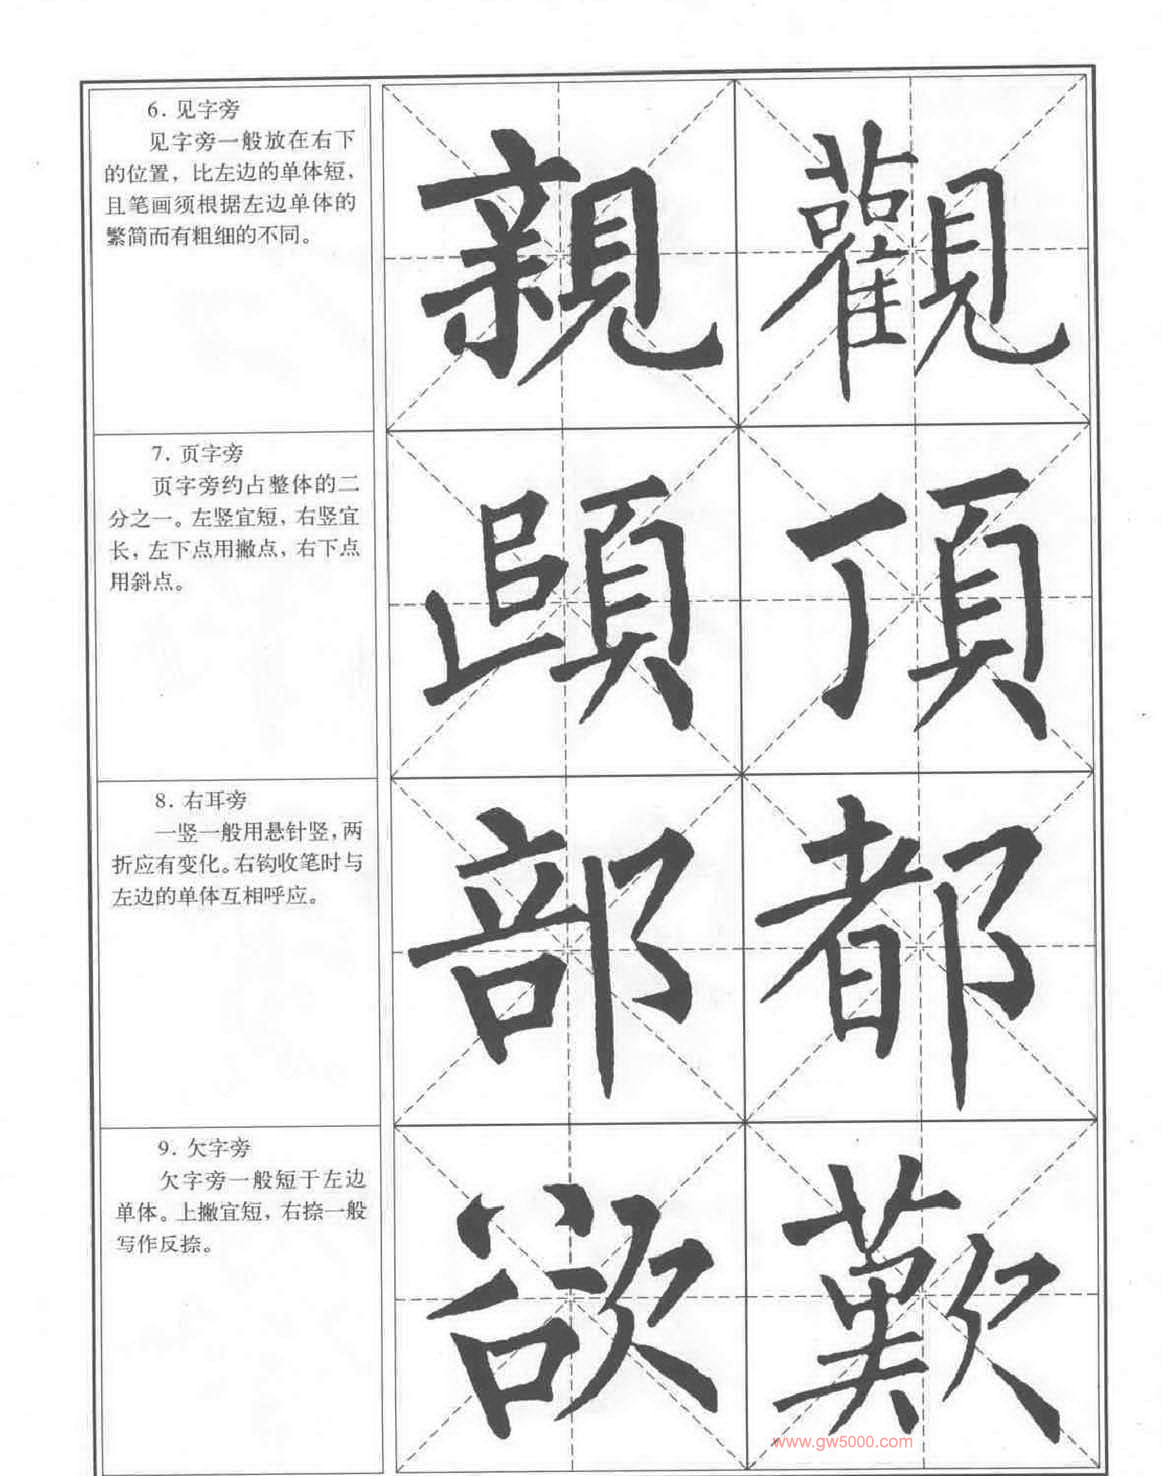 6. 见字旁
见字旁一般放在右下
的位置，比左边的单体短，
且笔画须根据左边单体的
繁简而有粗细的不同。
親 觀
7. 页字旁
页字旁约占整体的二
分之一。左竖宜短，右竖宜
长，左下点用撇点，右下点
用斜点。
頂
8. 右耳旁
一竖一般用悬针竖，两
折应有变化。右钩收笔时与
左边的单体互相呼应。
部 都
9. 欠字旁
欠字旁一般短于左边
单体。上撇宜短，右捺一般
写作反捺。
欲 歎
www.gw5000.com